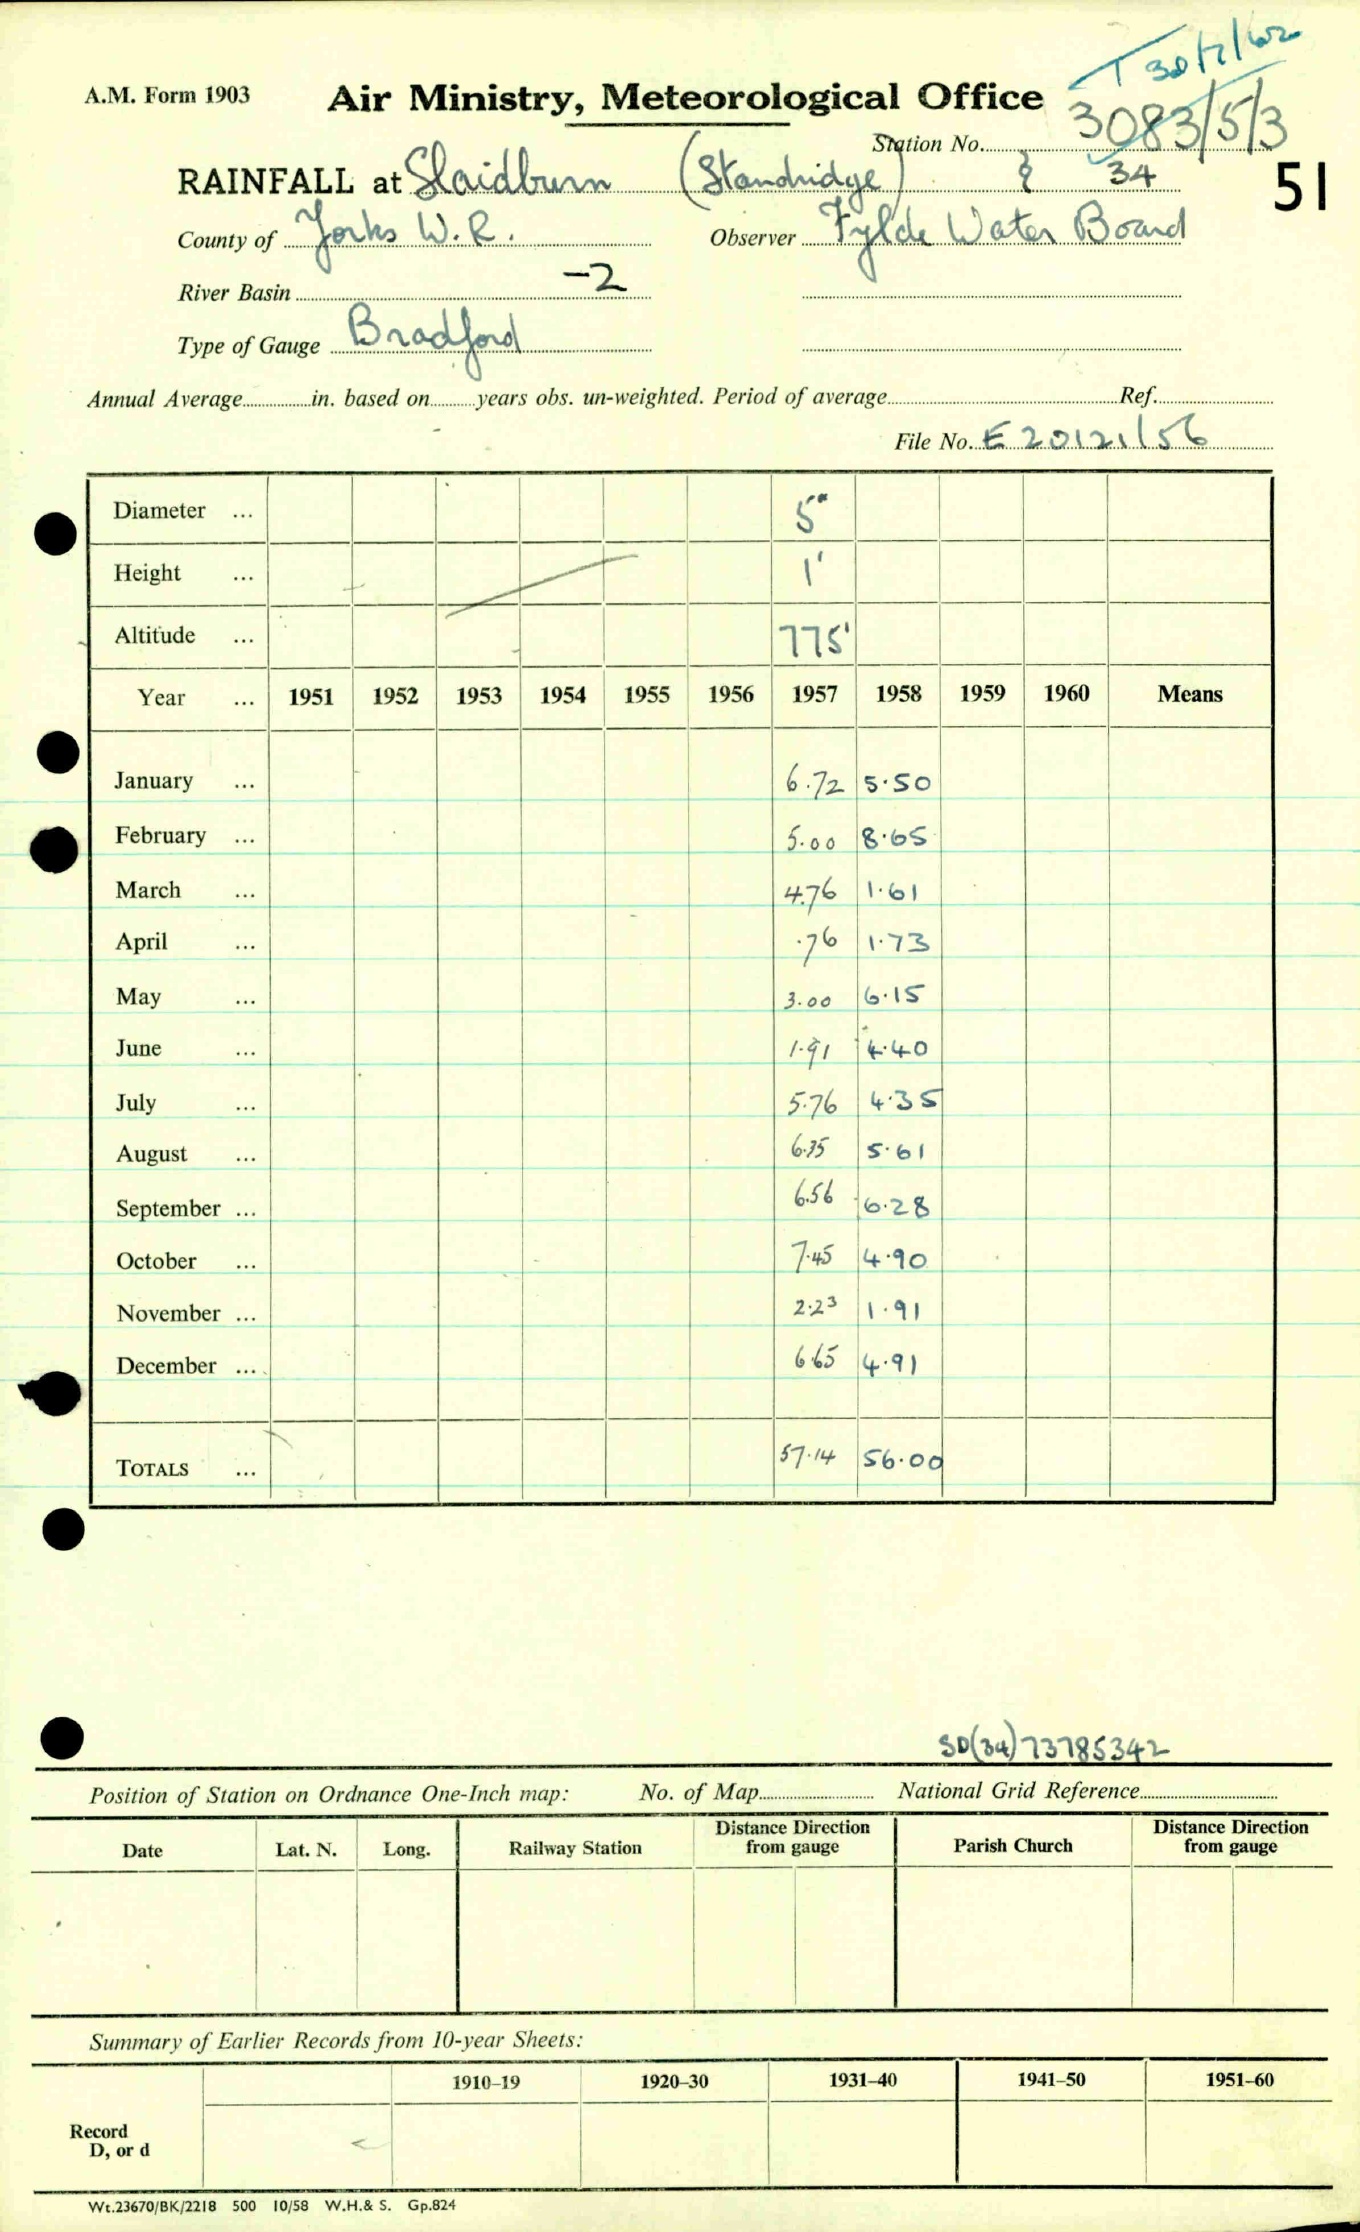 T 30/7/62
A.M. Form 1903
Air Ministry, Meteorological Office
Station No. 3083/5/3
RAINFALL at Slaidburn (Standridge) } 34
51
County of Yorks W.R. Observer Fylde Water Board
River Basin -2
Type of Gauge Bradford
Annual Average in. based on years obs. un-weighted. Period of average Ref.
File No. E 20121/56
Diameter ... 5"
Height ... 1'
Altitude ... 775'
Year ... 1951 1952 1953 1954 1955 1956 1957 1958 1959 1960 Means
January ... 6.72 5.50
February ... 5.00 8.65
March ... 4.76 1.61
April ... .76 1.73
May ... 3.00 6.15
June ... 1.91 4.40
July ... 5.76 4.35
August ... 6.35 5.61
September ... 6.56 6.28
October ... 7.45 4.90
November ... 2.23 1.91
December ... 6.65 4.91
TOTALS ... 57.14 56.00
SD(34)73785342
Position of Station on Ordnance One-Inch map: No. of Map National Grid Reference
Date Lat. N. Long. Railway Station Distance Direction from gauge Parish Church Distance Direction from gauge
Summary of Earlier Records from 10-year Sheets:
1910–19 1920–30 1931–40 1941–50 1951–60
Record
D, or d
Wt.23670/BK/2218 500 10/58 W.H.& S. Gp.824